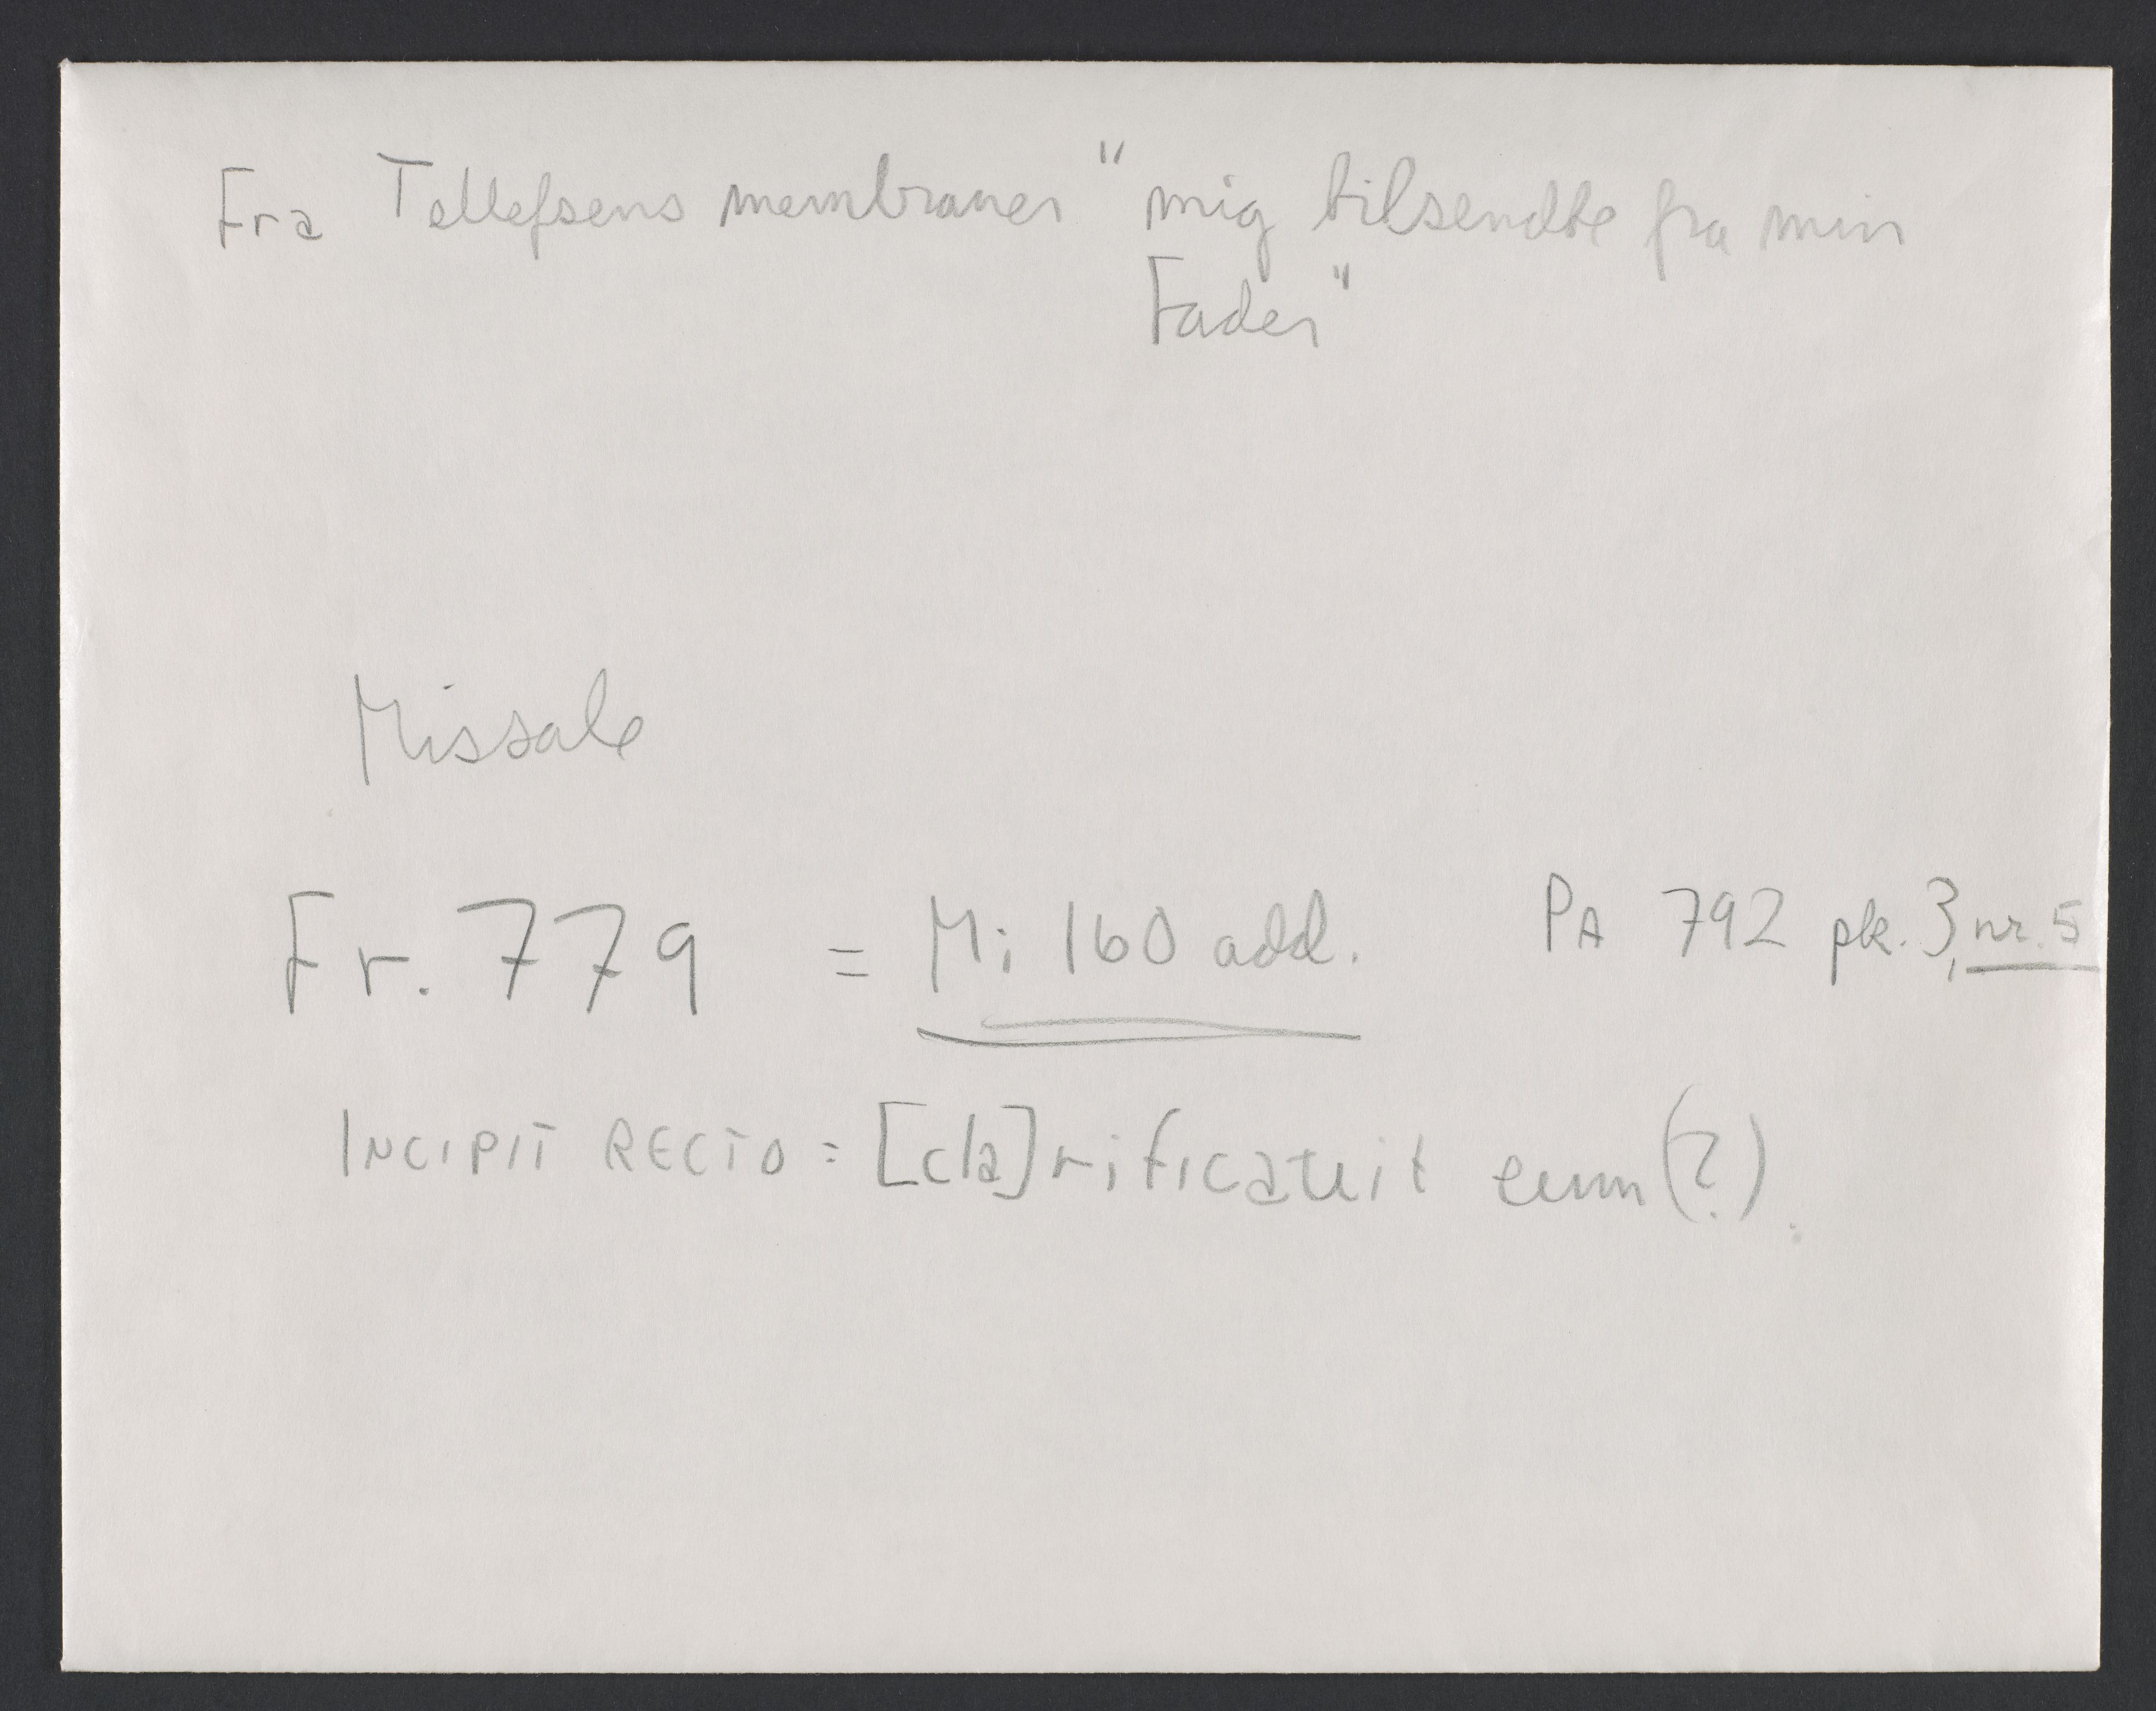 Fra Tellefsens membraner "mig tilsendte fra min
Fader"
Missale
Fr. 779 = Mi 160 add. PA 792 pk. 3, nr. 5
INCIPIT RECTO: [cla]rificauit eum (?).